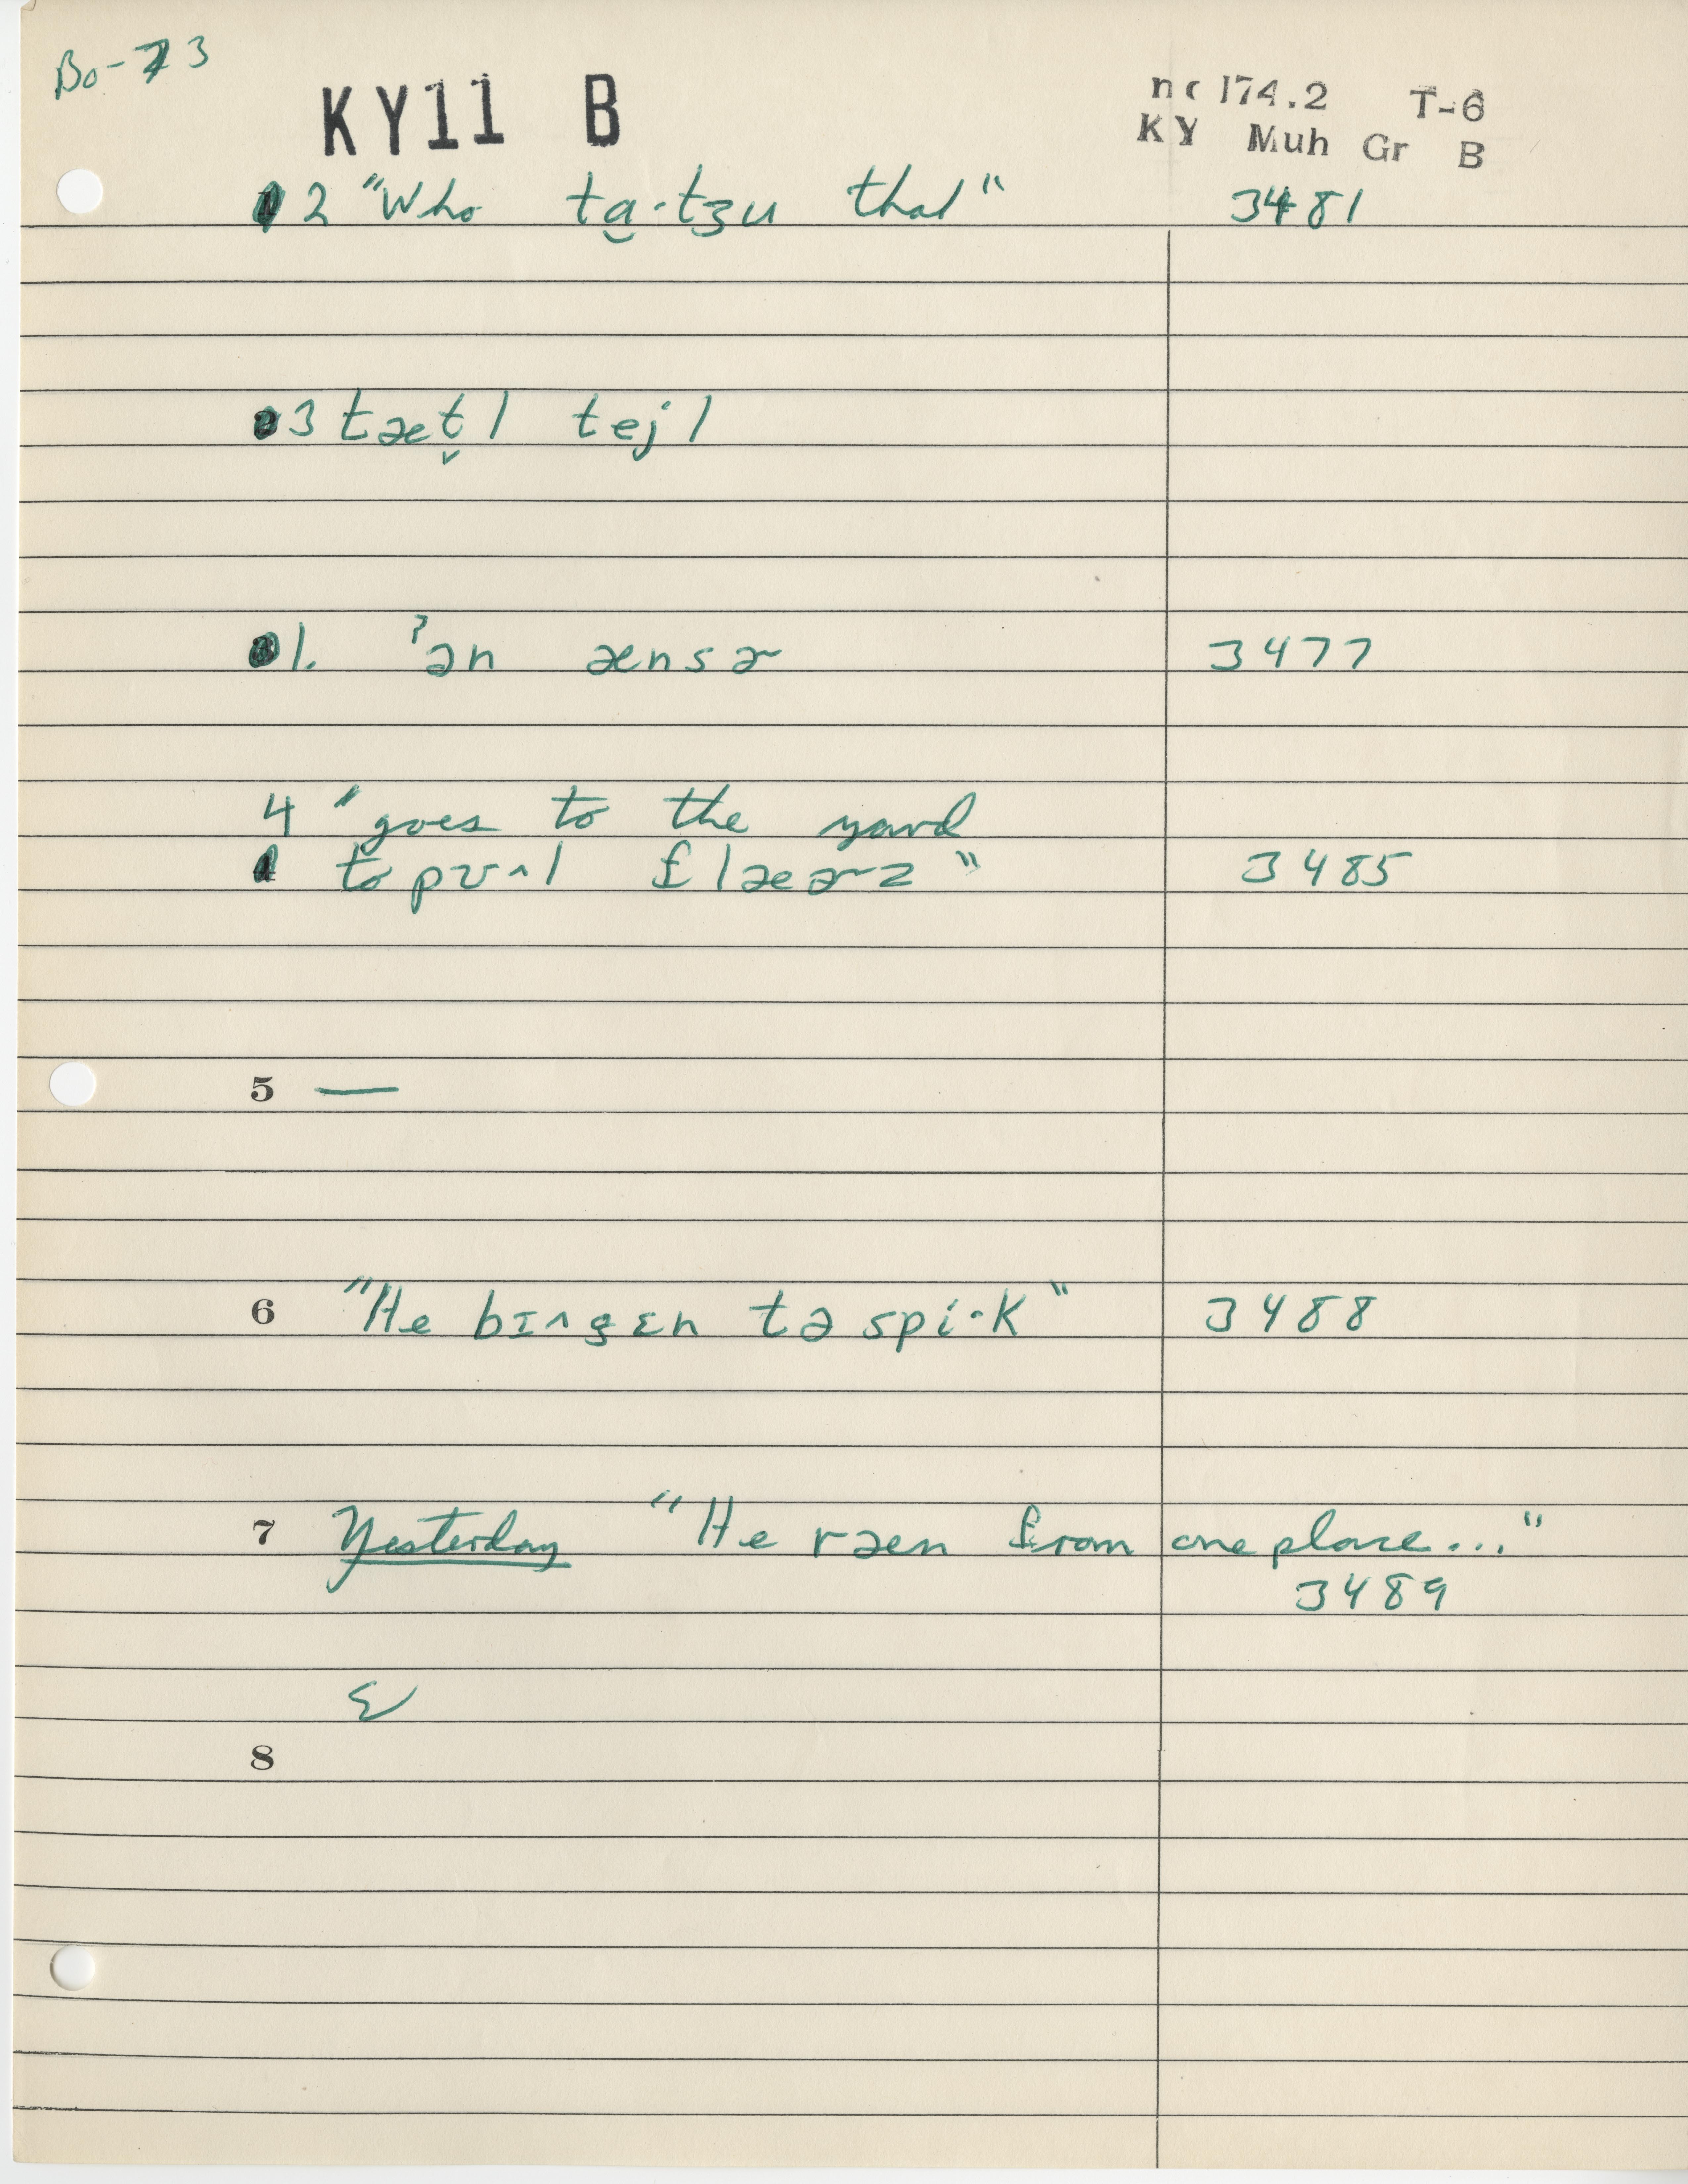 Bo-73
KY11 B
nc 174.2 T-6
KY Muh Gr B
2 "Who ta̬·tʒu that" 3481
3 tæt̬l tejl
1. ʔən ænsɚ 3477
4 "goes to the yard
to pʊ^l flæɚz" 3485
5 —
6 "He bɪ^gɛn tə spi·k" 3488
7 Yesterday "He ræn from one place..."
3489
ɛ
8